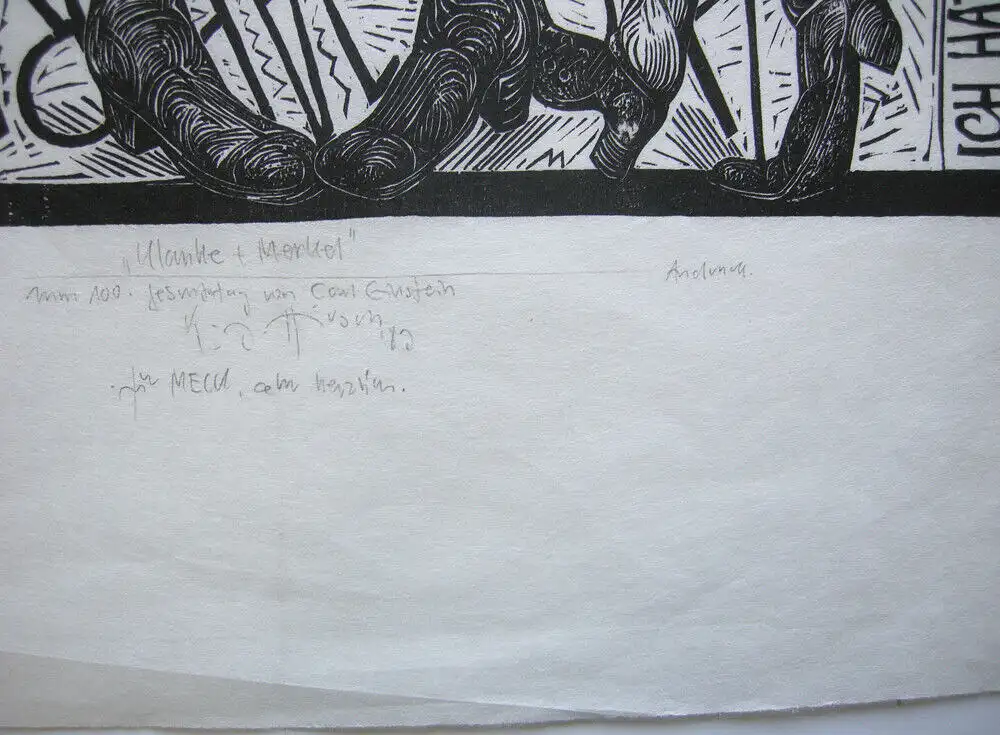 ICH HA
„Ulanke + Merkel"
Andruck.
zum 100. Geburtstag von Carl Einstein
für MECKI, sehr herzlich.